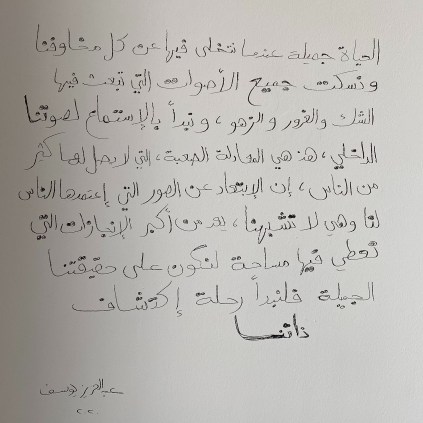 الحياة جميلة عندما نتخلى فيها عن كل مخاوفنا
ونسكت جميع الأصوات التي تبعث فيها
الشك والغرور والزهو، ونبدأ بالإستماع لصوتنا
الداخلي، هذه هي المعادلة الصعبة، التي لا يصل لها كثر
من الناس، إن الإبتعاد عن الصور التي إعتمدها الناس
لنا وهي لا تشبهنا، يعد من أكبر الإنجازات التي
تعطي فيها مساحة لنكون على حقيقتنا
الجميلة فلنبدأ رحلة إكتشاف
ذاتنا
عبدالعزيز يوسف
٢٢